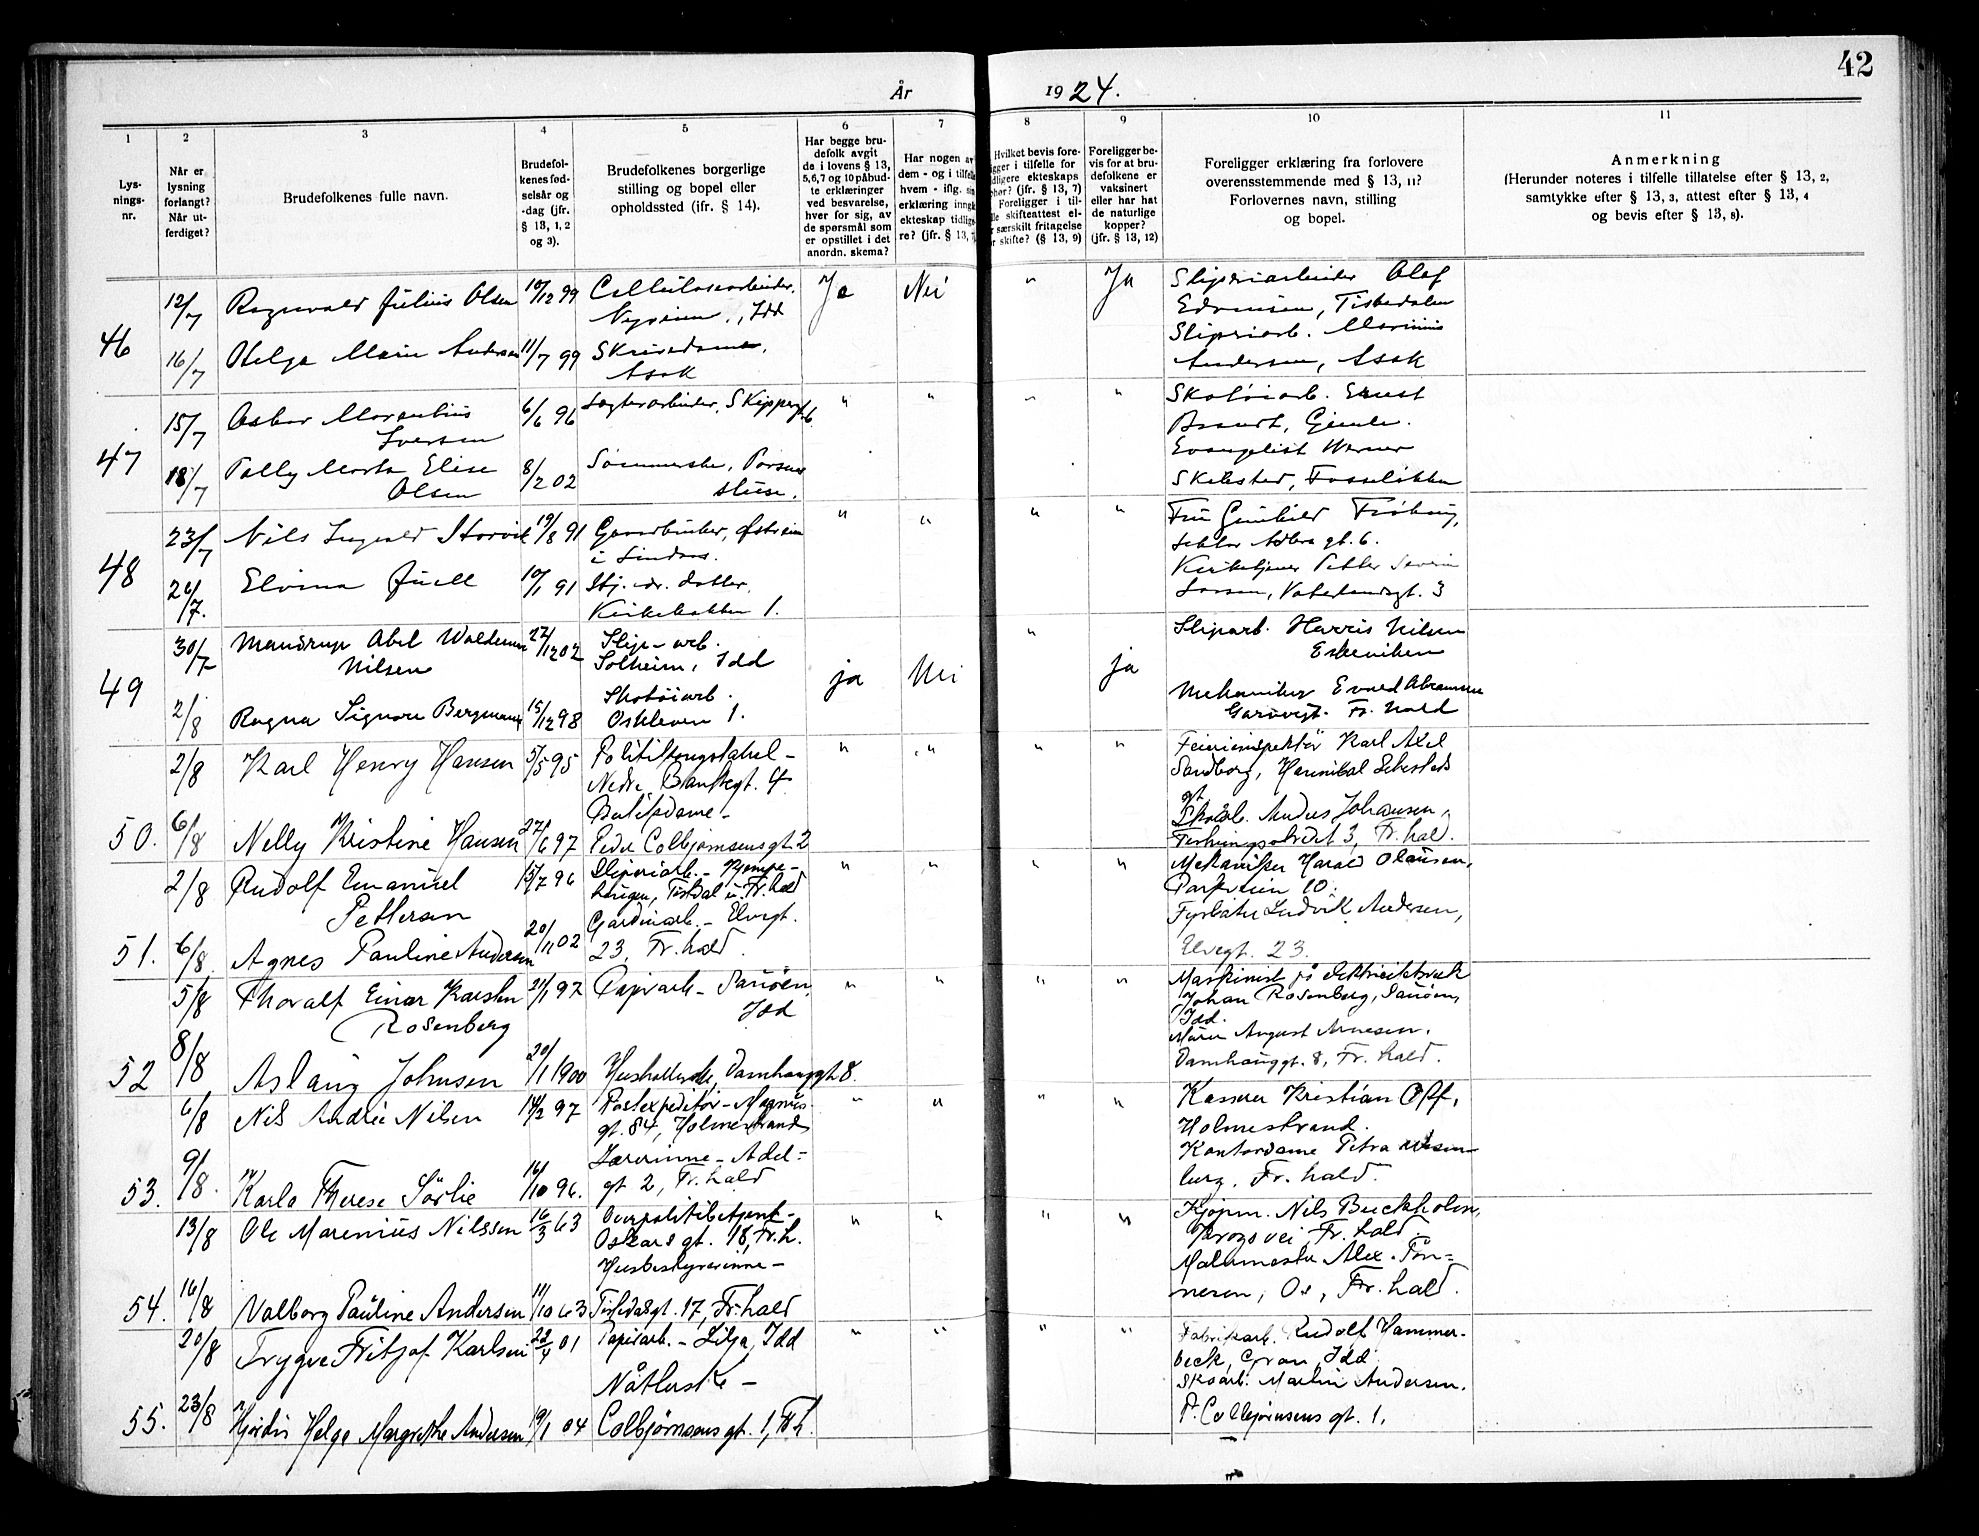 42
År 1924.
1 2 3 4 5 6 7 8 9 10 11
Lys-
nings-
nr.
Når er
lysning
forlangt?
Når ut-
ferdiget?
Brudefolkenes fulle navn.
Brudefol-
kenes fød-
selsår og
-dag (jfr.
§ 13, 1, 2
og 3).
Brudefolkenes borgerlige
stilling og bopel eller
opholdssted (ifr. § 14).
Har begge bru-
defolk avgit
de i lovens § 13,
5,6,7 og 10 påbud-
te erklæringer
ved besvarelse,
hver for sig, av
de spørsmål som
er opstillet i det
anordn. skema?
Har nogen av
dem - og i tilfelle
hvem - iflg. sin
erklæring inngå
ekteskap tidlige
re? (jfr. § 13,
Hvilket bevis fore-
ligger i tilfelle for
tidligere ekteskaps
ophør? (jfr. § 13, 7)
Foreligger i til-
felle skifteattest el-
særskilt fritagelse
skifte? (§ 13, 9)
Foreligger be-
vis for at bru-
defolkene er
vaksinert
eller har hat
de naturlige
kopper?
(jfr. § 13, 12)
Foreligger erklæring fra forlovere
overensstemmende med § 13, 11?
Forlovernes navn, stilling
og bopel.
Anmerkning
(Herunder noteres i tilfelle tillatelse efter § 13, 2,
samtykke efter § 13, 3, attest efter § 13, 4
og bevis efter § 13, 8).
46
12/7 Ragnvald Julius Olsen 10/12 99 Cellulosearbeider, Ja Nei " Ja Sliperiarbeider Olaf
Idd Tistedalen
16/7 Helga Marie Andersen 11/7 99 Sliperiarb. Marinius
Asak Andersen, Asak
47
15/7 Oskar Marentius 6/6 96 Skippergt. 6 " " " " Skotøiarb. Ernst
Iversen
18/7 Marta Elise 8/2 02 Evangelist Werner
Olsen
48
23/7 Nils Ingvald Storvik 19/8 91 " " " " Fru Gunhild
i
26/7. Elvina Juell 10/1 91 datter, Kirketjener Petter Severin
Kirkebakken 1. Larsen, 3
49
30/7 Mandrup Abel Waldemar 27/12 02 Slip-arb. ja Nei " ja Sliparb. Harris Nilsen
Nilsen Solheim, Idd Eskeviken
2/8 Ragna Signora Bergmann 15/12 98 Skotøiarb. Mekaniker Evald Abramsen
Oskleven 1. Fr. hald
50.
2/8 Karl Henry Hansen 5/5 95 Politikonstabel - " " " " Feierinspektør Karl Axel
Nedre Bankegt. 4 Sandborg, Hannibal Sehesteds
gt
6/8 Nelly Kristine Hansen 27/6 97 Butikdame - Skoarb. Anders Johansen,
Peder Colbjørnsensgt. 2 3, Fr. hald.
51.
2/8 Rudolf Emanuel 15/7 96 Sliperiarb. - " " " " Mekaniker Harald Olausen,
Pettersen Fr. hald 10.
6/8 Agnes Pauline Andersen 20/11 02 Gardinarb. - Elvegt. Fyrbøter Ludvik Andersen,
23, Fr. hald. Elvegt. 23.
52
5/8 Thoralf Einar Karsten 21/1 97 Papirarb - Sauøen, " " " " Maskinist på elektricitetsverk
Rosenberg Idd Johan Rosenberg, Sauøen,
Idd.
8/8 Aslaug Johnsen 20/1 1900 Husholderske, Damhauggt. 8. Murer August Arnesen,
Damhauggt. 8, Fr. hald.
53.
6/8 Nils Andrée Nilsen 14/2 97 Postexpeditør - Magnus " " " " Kasserer Kristian Off,
gt. 84, Holmestrand Holmestrand.
9/8. Karla Therese Sørlie 16/10 96. Lærerinne - Adel- Kontordame Petra
gt 2, Fr. hald burg, Fr. hald.
54.
13/8 Ole Marenius Nilssen 16/3 63 Overpolitibetjent - " " " " Kjøpm. Nils Buckholm,
Oskarsgt. 18, Fr. h. Fr. hald
16/8 Valborg Pauline Andersen 11/10 63 Husbestyrerinne - Malermester Alex. Tøn-
Tistedalsgt. 17, Fr. hald nesen, Os, Fr. hald.
55.
20/8 Trygve Fritjof Karlsen 22/4 01 Papirarb. - Lilja, Idd " " " " Fabrikarb. Rudolf Hammer-
beck, Gran, Idd
23/8 Hjørdis Helga Margrethe Andersen 19/1 04 Nåtlerske - Skoarb. Martin Andersen.
Colbjørnsensgt. 1, Fr. h. P. Colbjørnsens gt. 1,